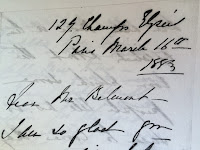 129 Champs Elysées
Paris March 16th
1883
Dear Mr Belmont
I am so glad you